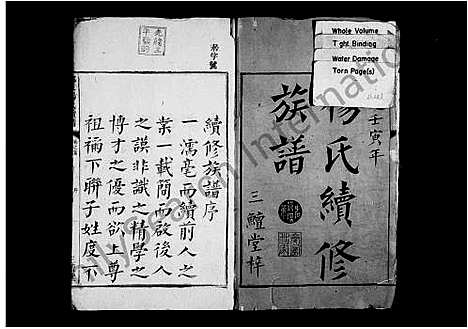 Whole Volume
Tight Binding
Water Damage
Torn Page(s)
壬寅年
楊氏續修
族譜
三鱣堂梓
續修族譜序
一濡毫而續前人之
業一載簡而啟後人
之謨非識之精學之
博才之優而欲上尊
祖禰下聯子姓度下